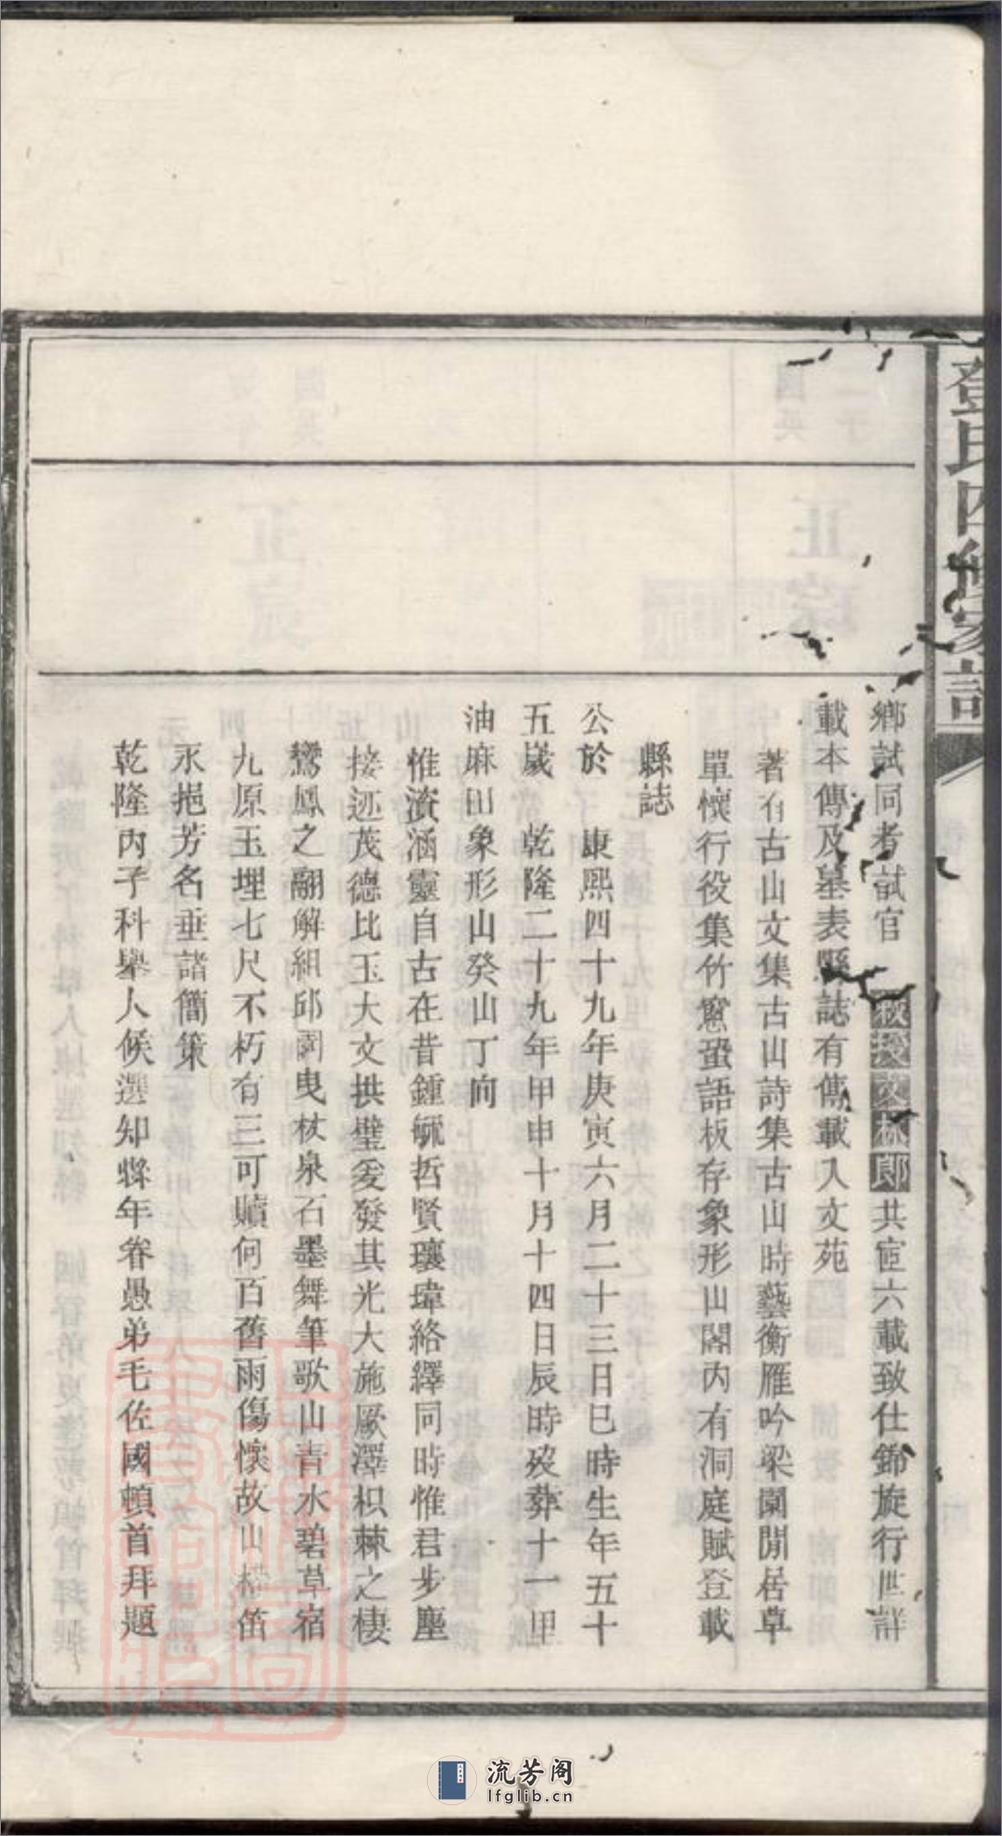 鄧氏四修家譜
鄉試同考試官 敕授文林郎共宦六載致仕錦旋行世詳
載本傳及墓表縣誌有傳載入文苑
著有古山文集古山詩集古山時藝衡雁吟梁園閒居草
單懷行役集竹窻蛩語板存象形山閣內有洞庭賦登載
縣誌
公於 康熙四十九年庚寅六月二十三日巳時生年五十
五歲 乾隆二十九年甲申十月十四日辰時歿葬十一甲
油麻田象形山癸山丁向
惟濱涵靈自古在昔鍾毓哲賢瓌瑋絡繹同時惟君步塵
接迹茂德比玉大文拱璧爰發其光大施厥澤枳棘之棲
鸞鳳之翮解組邱園曳杖泉石墨舞筆歌山青水碧草宿
九原玉埋七尺不朽有三可贖何百舊雨傷懷故山 笛
永挹芳名垂諸簡策
乾隆丙子科舉人候選知縣年眷愚弟毛佐國頓首拜題
流芳阁
lfglib.cn